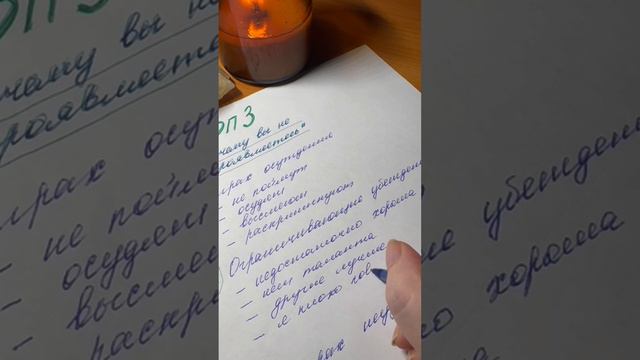 ЭПЗ
почему вы не
проявляетесь"
страх осуждения
- не поймут
- осудят
- высмеют
- раскритикуют
Ограничивающие убеждения
- недостаточно хороша
- нет таланта
- другие лучше
- я плохо гов